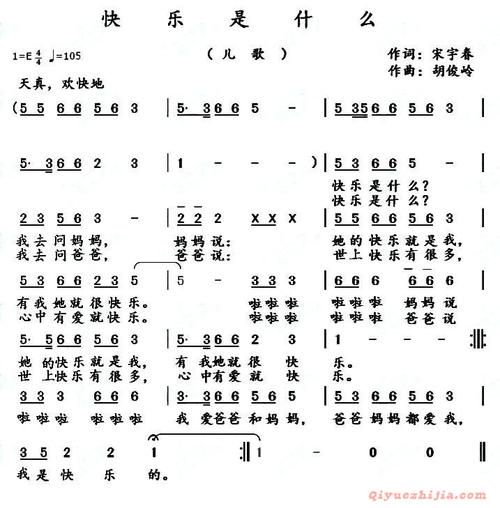 快乐是什么
1=E 4/4 ♩=105 （儿 歌） 作词：宋宇春
作曲：胡俊岭
天真，欢快地
(5 5 6 6 5 6 3 | 5· 3 6 6 2 3 | 5 35 6 6 5 6 3 |
5· 3 6 6 2 3 | 1 - - ) | 5 5 6 6 5 6 3 |
快乐是什么？
快乐是什么？
2 3 5 6 3 | 2 2 2 X X X | 5 5 6 6 5 6 3 |
我去问妈妈， 妈妈说： 她的快乐就是我，
我去问爸爸， 爸爸说： 世上快乐有很多，
5· 3 6 6 1 2 3 5 | 5 - 3 3 3 | 1 2 3 6 6 6 |
有我她就很快乐。 啦啦啦 啦啦啦 妈妈说
心中有爱就快乐。 啦啦啦 啦啦啦 爸爸说
5· 3 5 6 5 6 3 | 5· 3 6 6 2 3 | 1 - - :‖:
她的快乐就是我， 有我她就很快 乐。
世上快乐有很多， 心中有爱就快 乐。
3 3 3 1 2 3 | 6 3 5 6 5 6 3 | 5· 3 5 6 5 6 3 |
啦啦啦 啦啦啦 我爱爸爸和妈妈， 爸爸妈妈都爱我，
3 5 2 2 1 :‖ 1 - 0 ‖
我是快乐的。
Qiyuezhijia.com